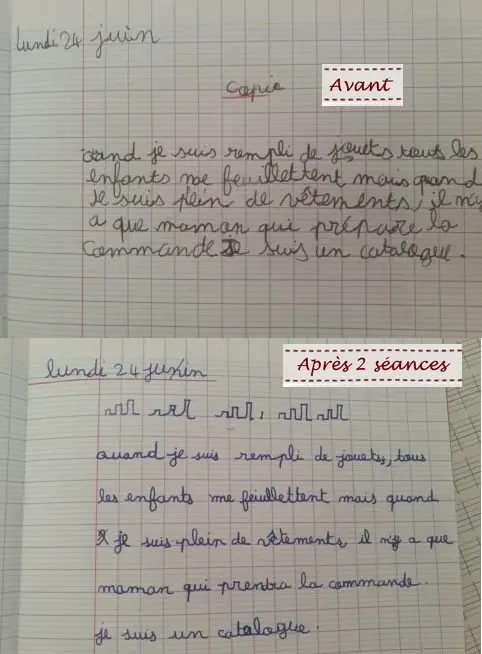 lundi 24 juin
Copie
Avant
quand je suis rempli de jouets tous les
enfants me feuillettent mais quand
je suis plein de vêtements, il n'y
a que maman qui prépare la
commande je suis un catalogue.
Après 2 séances
lundi 24 juin
quand je suis rempli de jouets, tous
les enfants me feuillettent mais quand
je suis plein de vêtements, il n'y a que
maman qui prendra la commande.
je suis un catalogue.